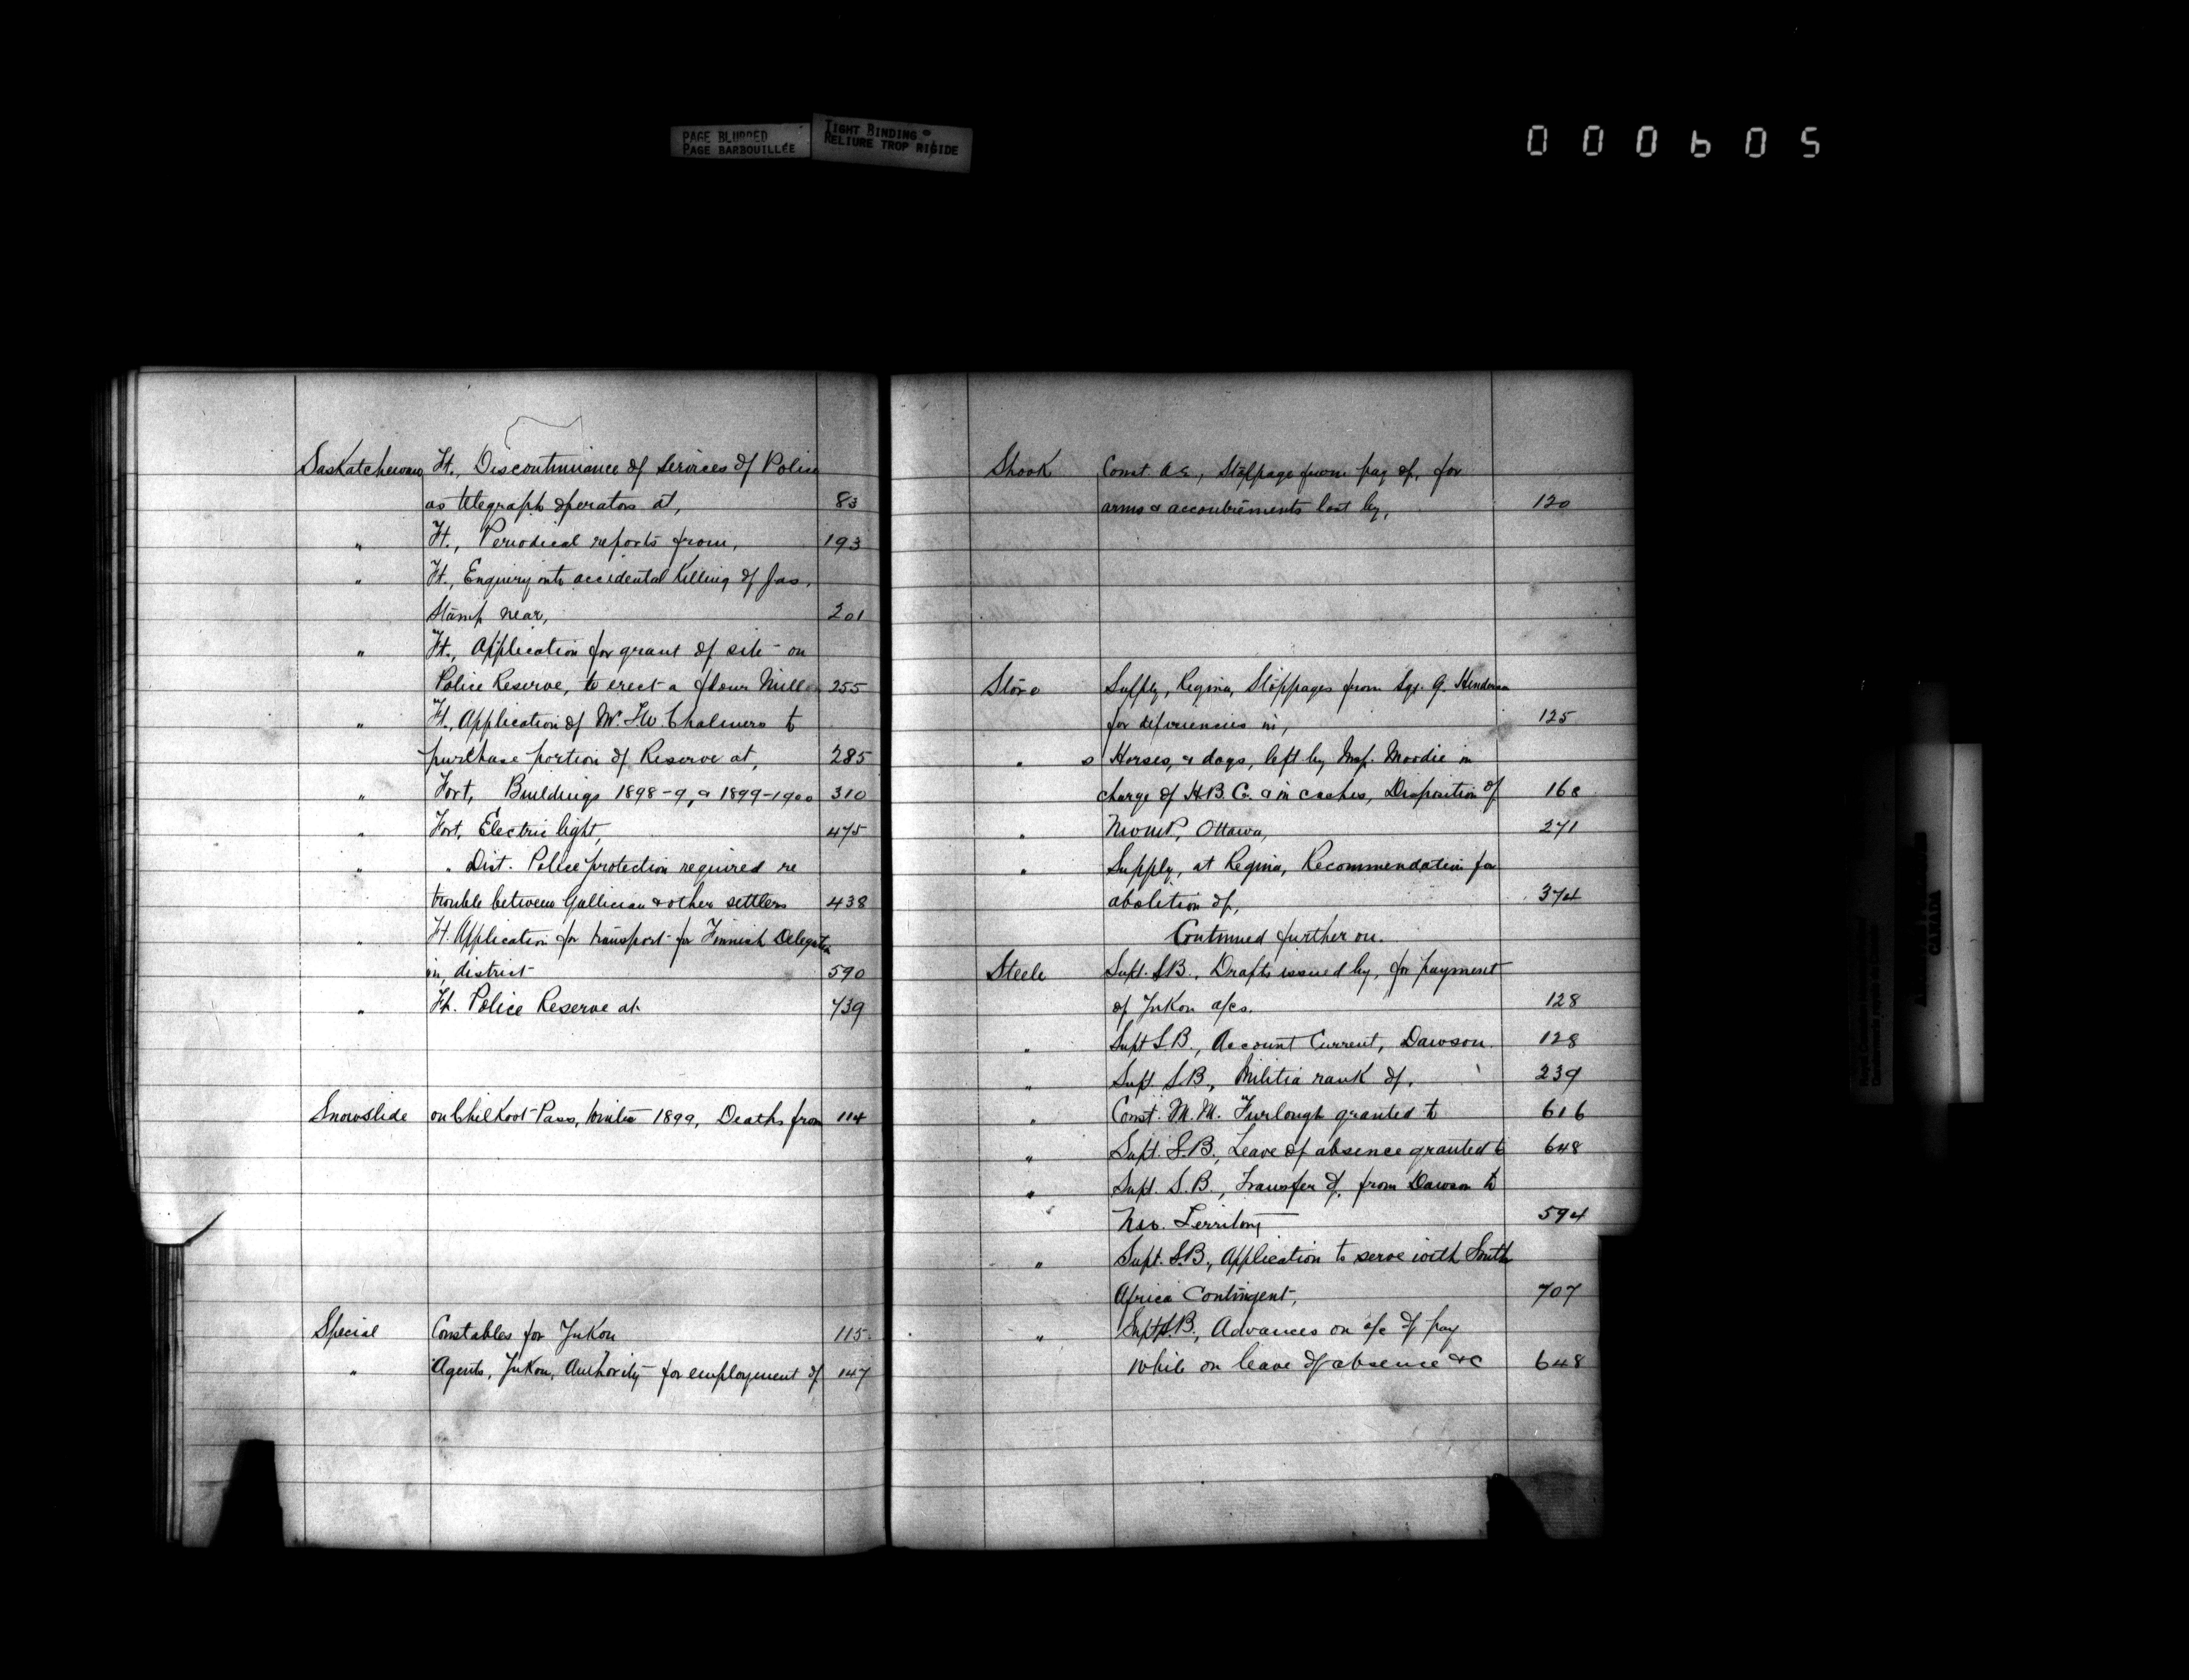 PAGE BLURRED
PAGE BARBOUILLÉE
TIGHT BINDING
RELIURE TROP RIGIDE
000605
Saskatchewan Ft., Discontinuance of services of Police
as telegraph operators at, 83
" Ft., Periodical reports from, 193
" Ft., Enquiry into accidental Killing of Jas.
Stamp near, 201
" Ft., Application for grant of site on
Police Reserve, to erect a flour Mill 255
" Ft. Application of W. Chalmers to
purchase portion of Reserve at, 285
" Fort, Buildings 1898-9, & 1899-1900 310
" Fort, Electric light, 475
" " Dist. Police protection required re
trouble between Gallician & other settlers 438
" Ft. Application for transport for Finnish Delegates
in district 590
" Ft. Police Reserve at 739
Snowslide on ChilKoot Pass, Winter 1899, Deaths from 114
Special Constables for YuKon 115
" Agents, YuKon, Authority for employment of 147
Shook Const. Stoppage from pay of, for
arms & accoutrements lost by, 120
Store Supply, Regina, Stoppages from Sgt. G. Henderson
for deficiencies in, 125
" s Horses, & dogs, left by Insp. Moodie in
charge of H.B. Co. & in caches, Disposition of 168
" NWMP, Ottawa, 271
" Supply, at Regina, Recommendation for
abolition of, 374
Continued further on.
Steele Supt. S.B., Drafts issued by, for payment
of YuKon a/cs. 128
" Supt S.B., Account Current, Dawson. 128
" Supt. S.B., Militia rank of, 239
" Const. M.M. Furlough granted to 616
" Supt. S.B., Leave of absence granted to 648
" Supt. S.B., Transfer of, from Dawson to
NW. Territory 594
" Supt. S.B., Application to serve with South
Africa Contingent, 707
" Supt S.B., Advances on a/c of pay
while on leave of absence &c 648